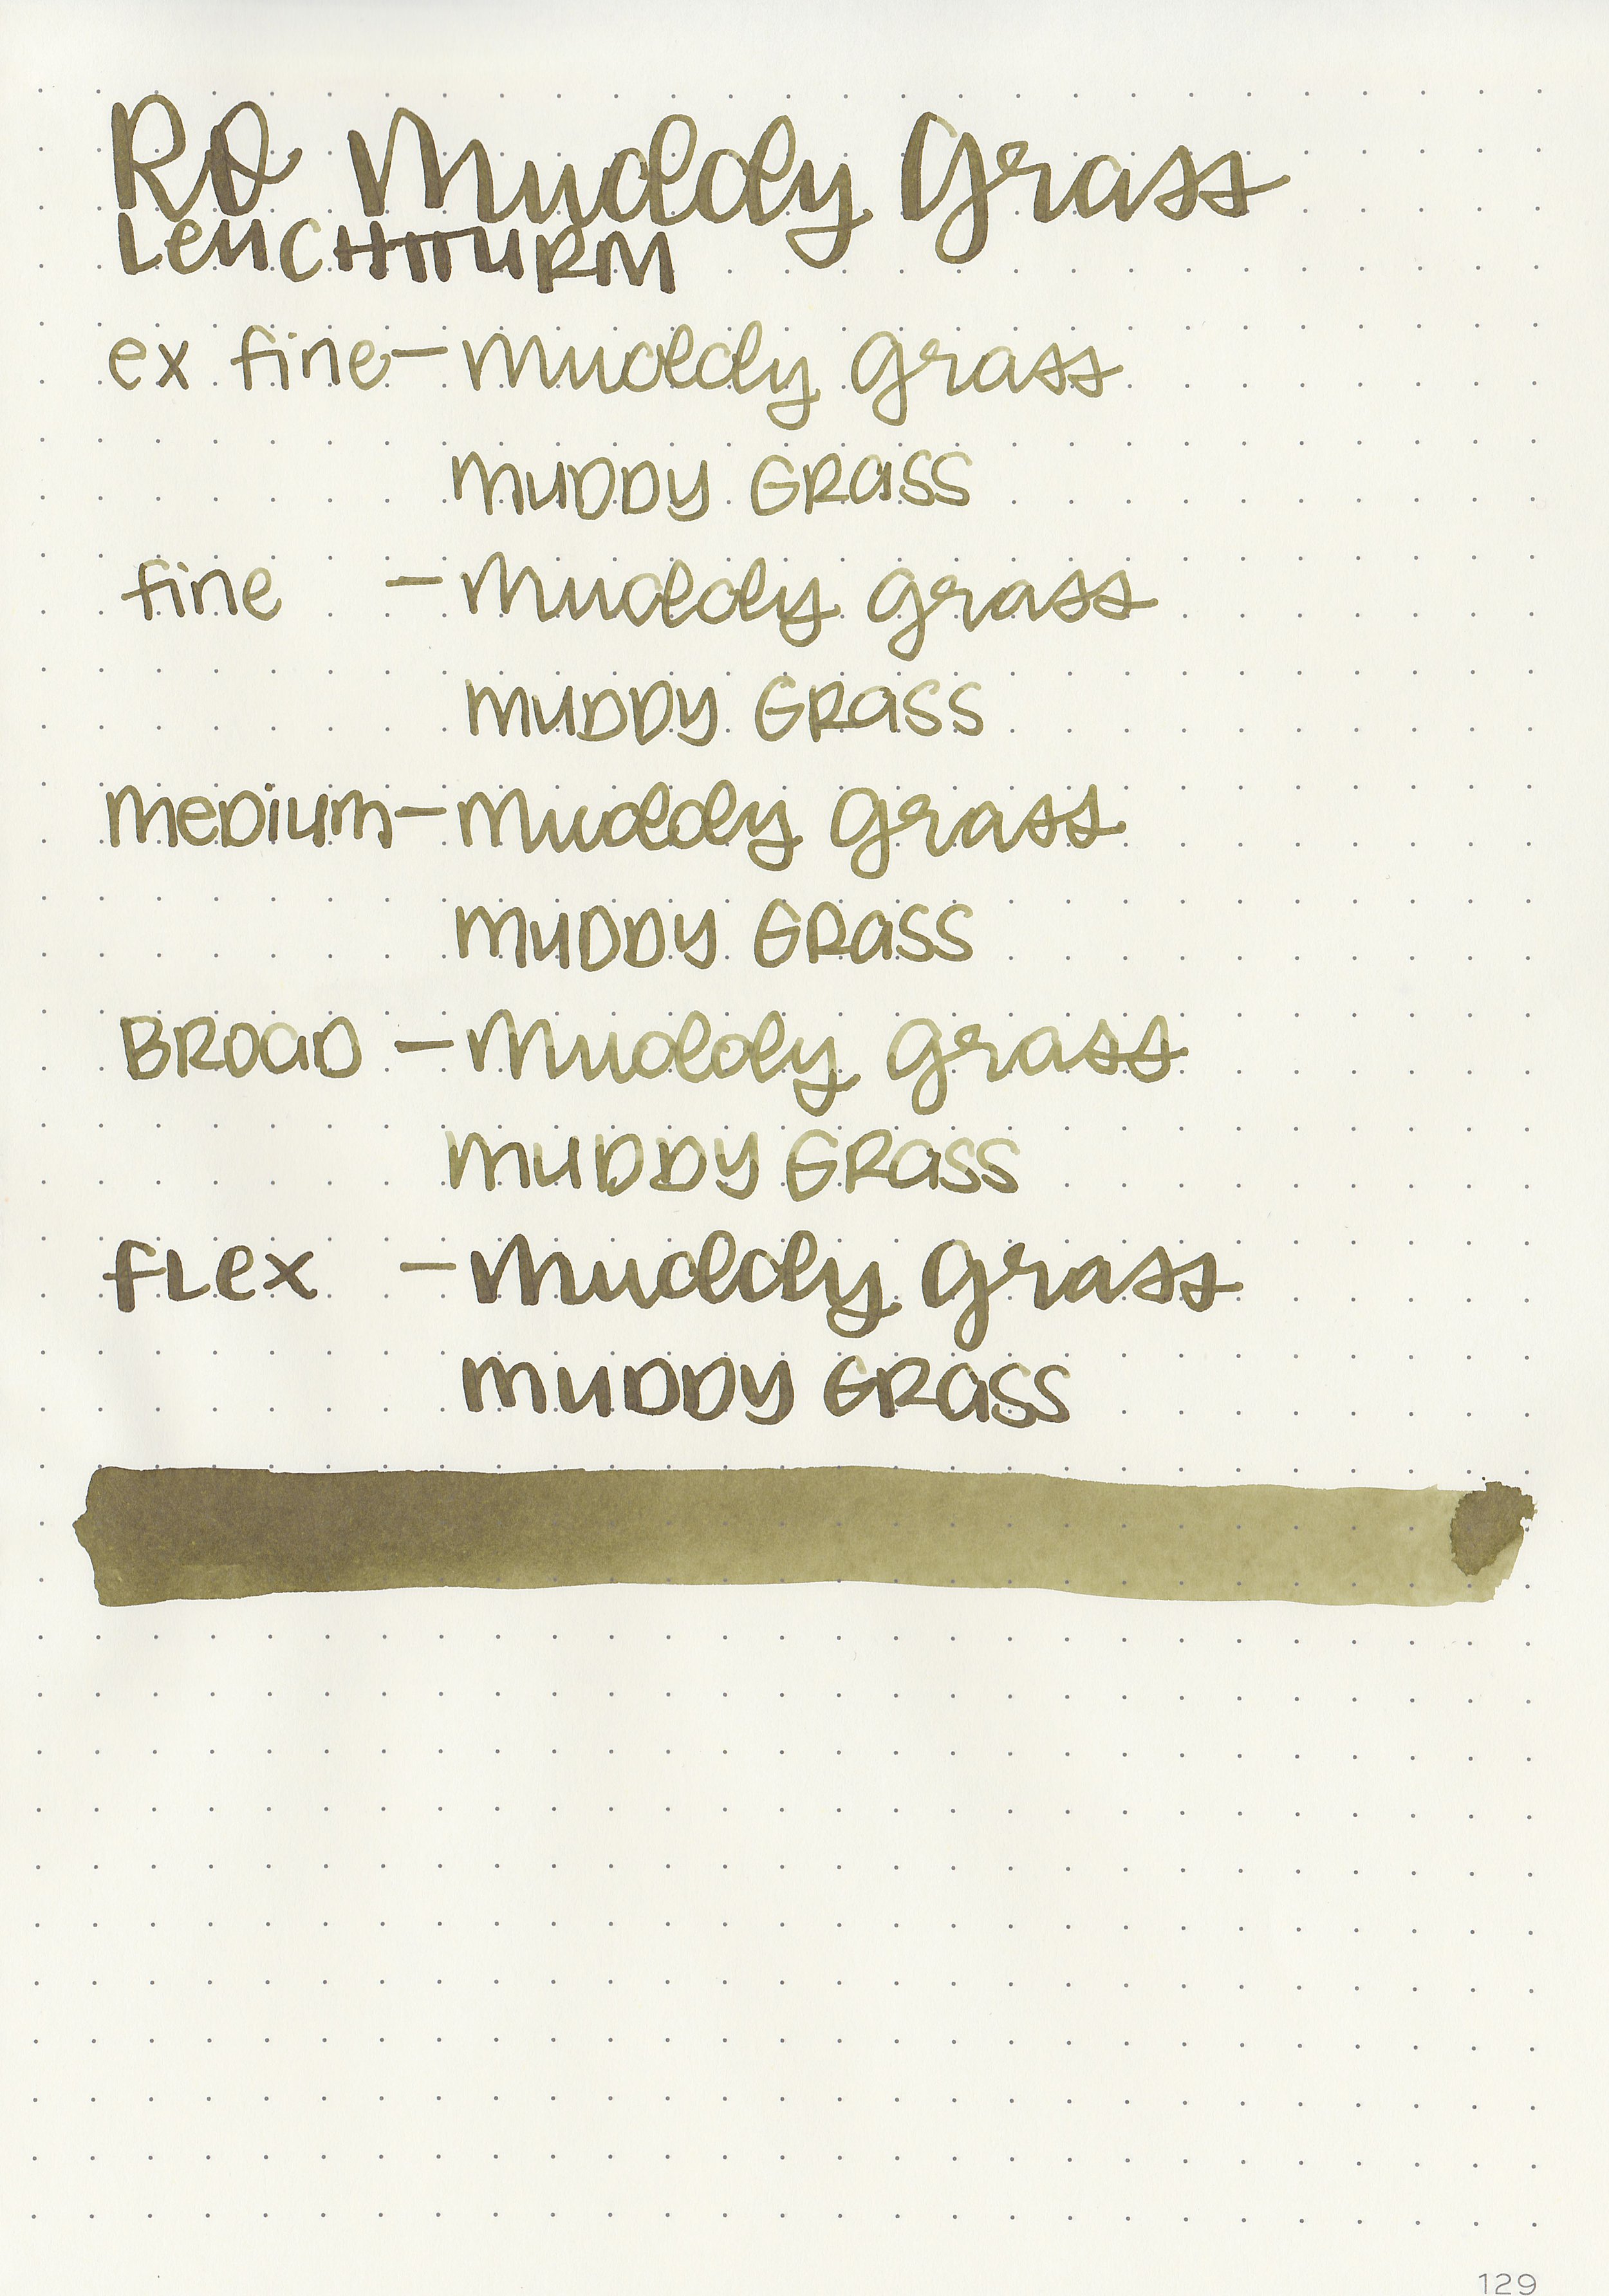 RO Muddy Grass
LEUCHTTURM
ex fine - Muddy Grass
MUDDY GRASS
fine - Muddy Grass
MUDDY GRASS
MEDIUM - Muddy Grass
MUDDY GRASS
BROAD - Muddy Grass
MUDDY GRASS
FLEX - Muddy Grass
MUDDY GRASS
129